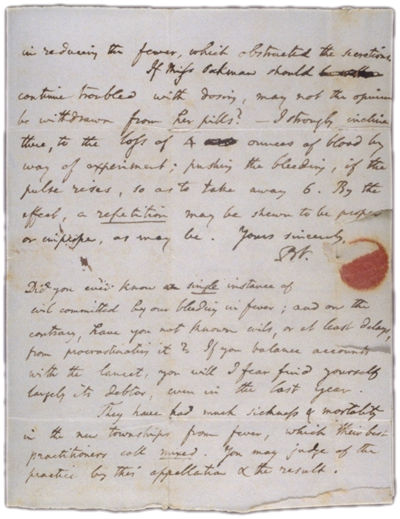 in reducing the fever, which obstructed the secretions.
If Miss should
continue troubled with dosing, may not the opium
be withdrawn from her pills? — I strongly incline
then, to the loss of 4 ounces of blood by
way of experiment; pushing the bleeding, if the
pulse rises, so as to take away 6. By the
effect, a repetition may be shewn to be proper
or improper, as may be. Yours sincerely,
Did you ever know a single instance of
evil committed by one bleeding in fever; and on the
contrary, have you not known evils, or at least delays,
from procrastinating it? If you balance accounts
with the lancet, you will I fear find yourself
largely its debtor, even in the last year.
They have had much sickness & mortality
in the new townships from fever, which their best
practitioners call mixed. You may judge of the
practice by this appellation & the result.